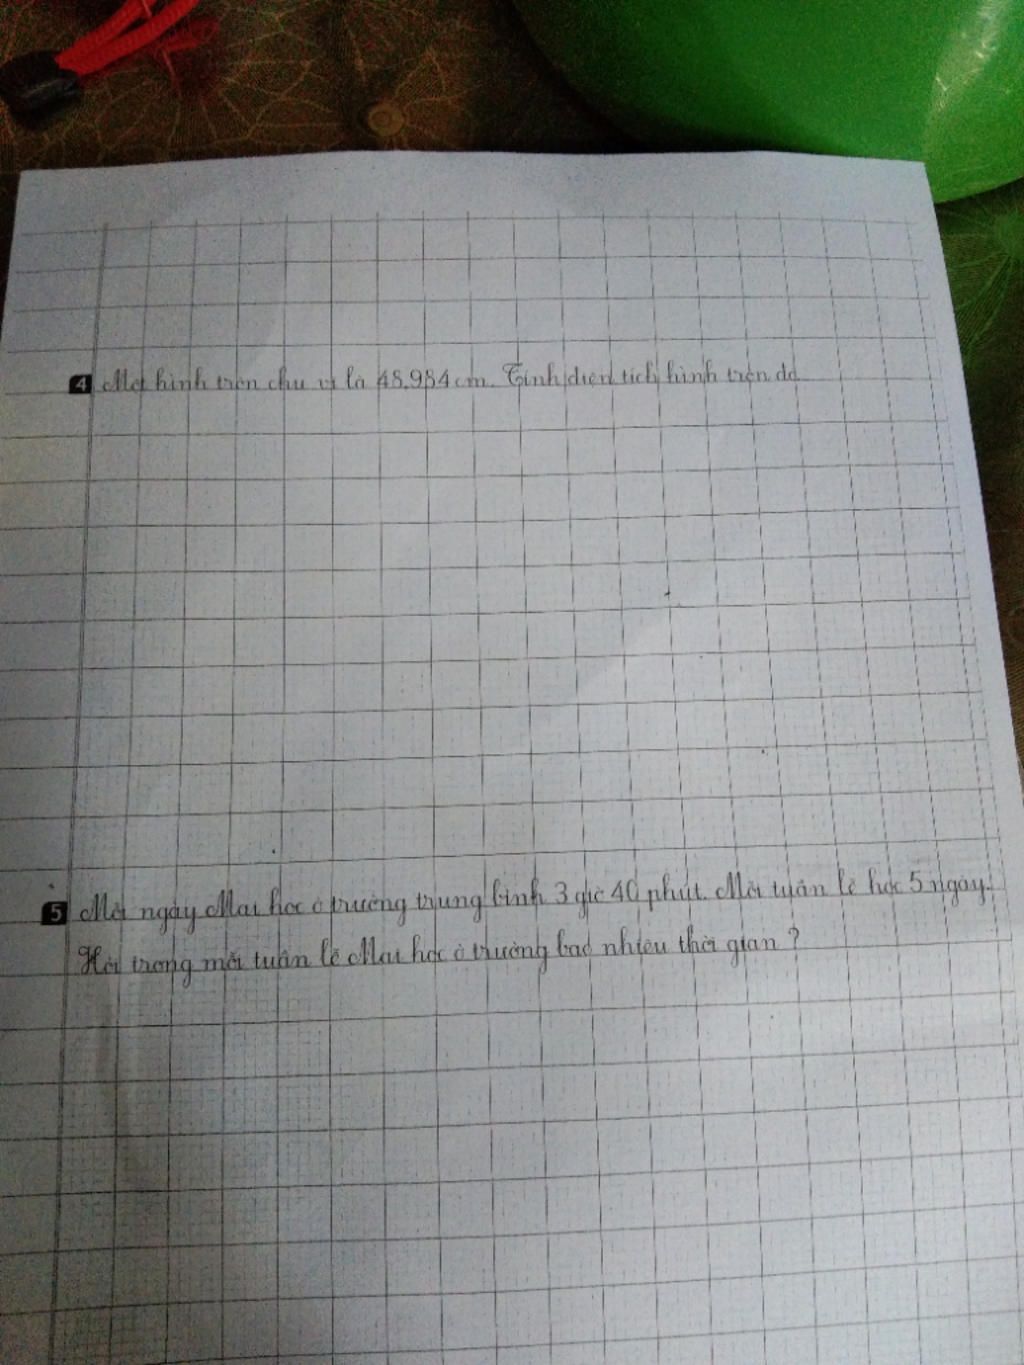 4 Một hình tròn chu vi là 48,984 cm. Tính diện tích hình tròn đó.
5 Mỗi ngày Mai học ở trường trung bình 3 giờ 40 phút. Mỗi tuần lễ học 5 ngày.
Hỏi trong mỗi tuần lễ Mai học ở trường bao nhiêu thời gian ?